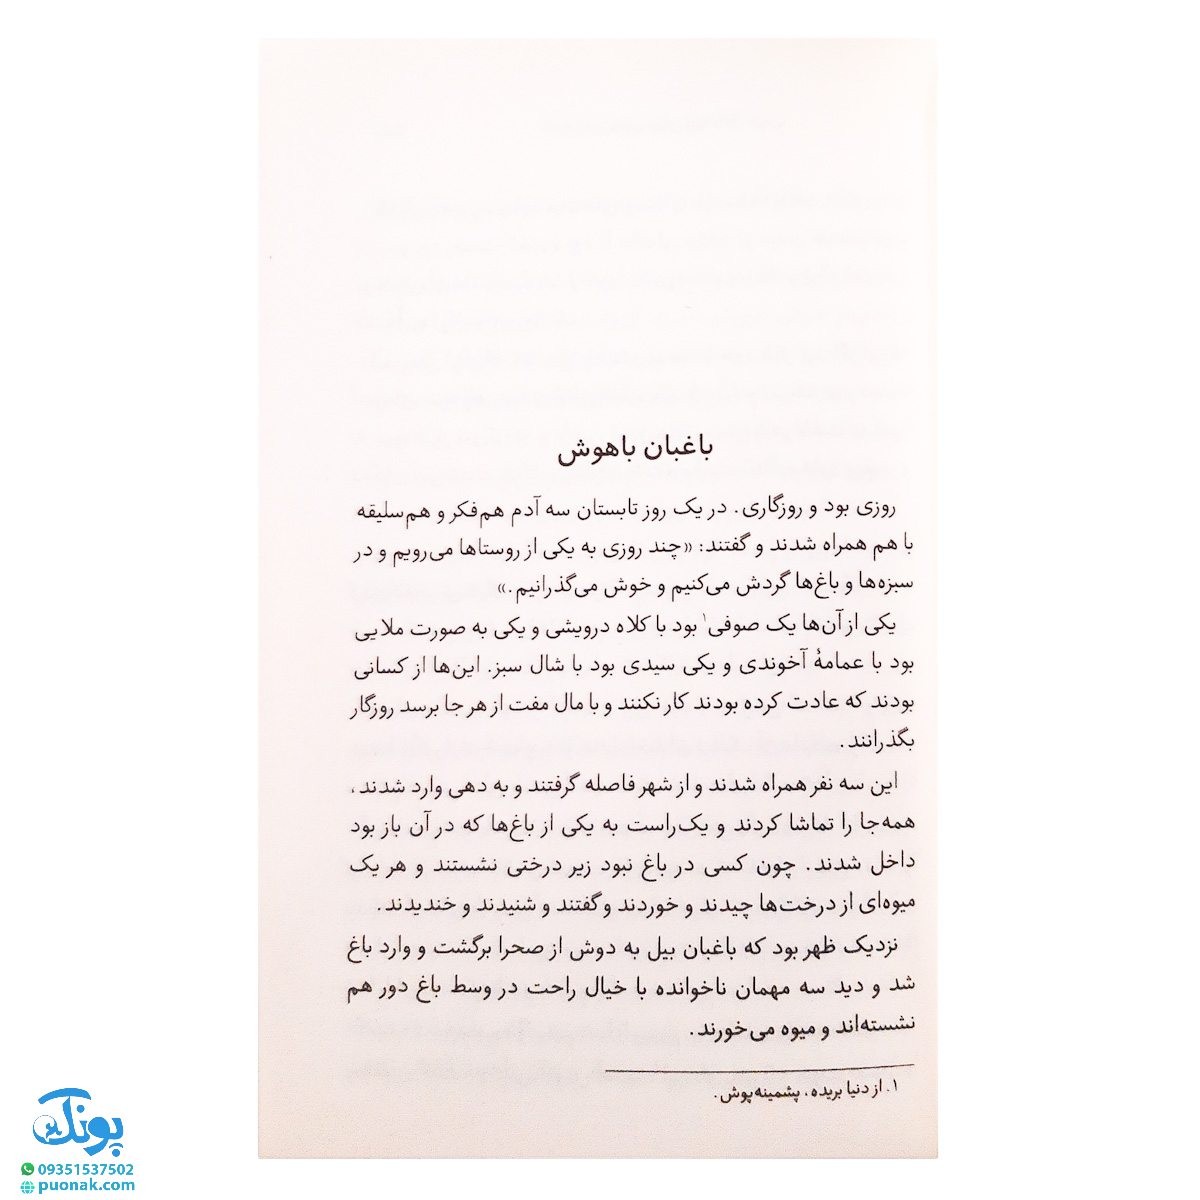 باغبان باهوش
روزی بود و روزگاری. در یک روز تابستان سه آدم هم‌فکر و هم‌سلیقه
با هم همراه شدند و گفتند: «چند روزی به یکی از روستاها می‌رویم و در
سبزه‌ها و باغ‌ها گردش می‌کنیم و خوش می‌گذرانیم.»
یکی از آن‌ها یک صوفی۱ بود با کلاه درویشی و یکی به صورت ملایی
بود با عمامهٔ آخوندی و یکی سیدی بود با شال سبز. این‌ها از کسانی
بودند که عادت کرده بودند کار نکنند و با مال مفت از هر جا برسد روزگار
بگذرانند.
این سه نفر همراه شدند و از شهر فاصله گرفتند و به دهی وارد شدند،
همه‌جا را تماشا کردند و یک‌راست به یکی از باغ‌ها که در آن باز بود
داخل شدند. چون کسی در باغ نبود زیر درختی نشستند و هر یک
میوه‌ای از درخت‌ها چیدند و خوردند و گفتند و شنیدند و خندیدند.
نزدیک ظهر بود که باغبان بیل به دوش از صحرا برگشت و وارد باغ
شد و دید سه مهمان ناخوانده با خیال راحت در وسط باغ دور هم
نشسته‌اند و میوه می‌خورند.
۱. از دنیا بریده، پشمینه‌پوش.
پونک
09351537502
puonak.com